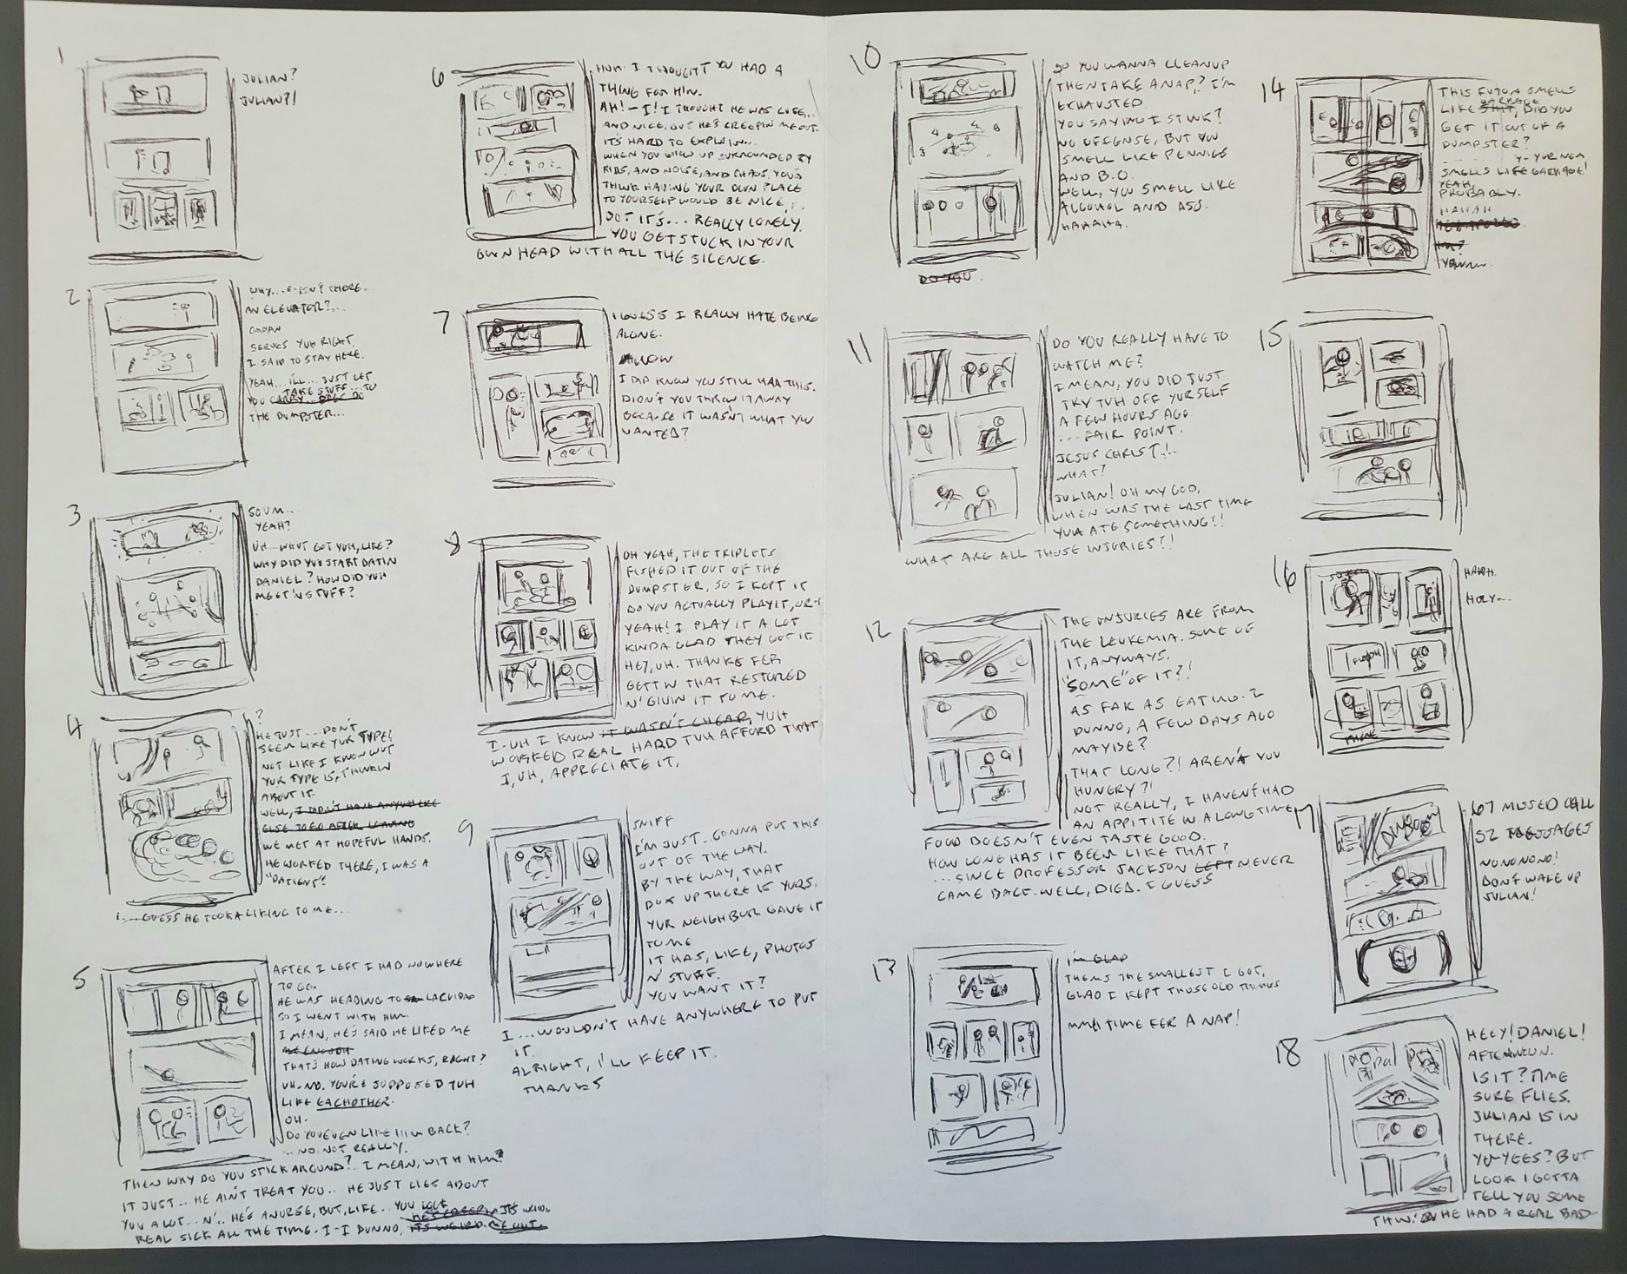 1
JULIAN?
JULIAN?!
2
WHY... E-ISN'T THERE
AN ELEVATOR?...
SERVES YUH RIGHT.
I SAID TO STAY HERE.
YEAH... I'LL... JUST LET
YOU TAKE STUFF... TO
THE DUMPSTER...
3
SO UM...
YEAH?
UH... WHUT GOT YUH, LIKE?
WHY DID YUH START DATIN
DANIEL? HOW DID YUH
MEET 'N STUFF?
4
?
HE JUST... DON'T
SEEM LIKE YUR TYPE!
NOT LIKE I KNOW WUT
YUR TYPE IS, THINKIN
ABOUT IT.
WELL, I DIDN'T HAVE ANYWHERE
ELSE TO GO AFTER LEAVING
WE MET AT HOPEFUL HANDS.
HE WORKED THERE, I WAS A
"PATIENT".
I.....GUESS HE TOOK A LIKING TO ME...
5
AFTER I LEFT I HAD NOWHERE
TO GO.
HE WAS HEADING TO
SO I WENT WITH HIM.
I MEAN, HE'S SAID HE LIKED ME
THAT'S HOW DATING WORKS, RIGHT?
UH. NO. YOU'RE SUPPOSED TUH
LIKE EACHOTHER.
OH.
DO YOU EVEN LIKE HIM BACK?
...NO. NOT REALLY.
THEN WHY DO YOU STICK AROUND? I MEAN, WITH HIM?
IT JUST... HE AIN'T TREAT YOU... HE JUST LIES ABOUT
YOU A LOT... N'.. HE'S A NURSE, BUT, LIKE... YOU LOOK
REAL SICK ALL THE TIME. I-I DUNNO, IT'S WEIRD
6
HUH. I THOUGHT YOU HAD A
THING FOR HIM.
AH! - I! I THOUGHT HE WAS CUTE...
AND NICE. BUT HE'S CREEPIN' ME OUT.
IT'S HARD TO EXPLAIN...
WHEN YOU GREW UP SURROUNDED BY
KIDS, AND NOISE, AND CHAOS, YOU'D
THINK HAVING YOUR OWN PLACE
TO YOURSELF WOULD BE NICE,
BUT IT'S... REALLY LONELY.
YOU GET STUCK IN YOUR
OWN HEAD WITH ALL THE SILENCE.
7
I GUESS I REALLY HATE BEING
ALONE.
I DID KNOW YOU STILL HAD THIS.
DIDN'T YOU THROW IT AWAY
BECAUSE IT WASN'T WHAT YOU
WANTED?
8
OH YEAH, THE TRIPLETS
FISHED IT OUT OF THE
DUMPSTER, SO I KEPT IT
DO YOU ACTUALLY PLAY IT, OR-
YEAH! I PLAY IT A LOT
KINDA GLAD THEY GOT IT
HEY, UH. THANKS FER
GETTIN THAT RESTORED
N' GIVIN IT TO ME.
I. UH I KNOW IT WASN'T CHEAP, YUH
WORKED REAL HARD TUH AFFORD THAT
I, UH, APPRECIATE IT.
9
SNIFF
I'M JUST.. GONNA PUT THIS
OUT OF THE WAY.
BY THE WAY, THAT
BOX UP THERE IS YURS.
YUR NEIGHBUR GAVE IT
TO ME
IT HAS, LIKE, PHOTOS
N' STUFF.
YOU WANT IT?
I....WOULDN'T HAVE ANYWHERE TO PUT
IT.
ALRIGHT, I'LL KEEP IT.
THANKS
10
SO YOU WANNA CLEANUP
THEN TAKE A NAP? I'M
EXHAUSTED.
YOU SAYING I STINK?
NO OFFENSE, BUT YOU
SMELL LIKE PENNIES
AND B.O.
WELL, YOU SMELL LIKE
ALCOHOL AND ASS.
HAHAHA.
DO YOU
11
DO YOU REALLY HAVE TO
WATCH ME?
I MEAN, YOU DID JUST
TRY TUH OFF YURSELF
A FEW HOURS AGO
....FAIR POINT.
JESUS CHRIST!!
WHAT?
JULIAN! OH MY GOD,
WHEN WAS THE LAST TIME
YUH ATE SOMETHING!!
WHAT ARE ALL THOSE INJURIES?!
12
THE INJURIES ARE FROM
THE LEUKEMIA. SOME OF
IT, ANYWAYS.
"SOME" OF IT?!
AS FAR AS EATING. I
DUNNO, A FEW DAYS AGO
MAYBE?
THAT LONG?! AREN'T YOU
HUNGRY?!
NOT REALLY, I HAVEN'T HAD
AN APPITITE IN A LONG TIME
FOOD DOESN'T EVEN TASTE GOOD.
HOW LONG HAS IT BEEN LIKE THAT?
...SINCE PROFESSOR JACKSON LEFT NEVER
CAME BACK. WELL, DIED. I GUESS
13
I'M GLAD
THEM'S THE SMALLEST I GOT,
GLAD I KEPT THOSE OLD THINGS
MMH TIME FER A NAP!
14
THIS FUTON SMELLS
LIKE SHIT, GARBAGE DID YOU
GET IT OUT OF A
DUMPSTER?
Y- YUR MOM
SMELLS LIKE GARBAGE!
YEAH,
PROBABLY.
HAHAH
YAWN...
15
16
HAHAH.
HOLY-
17
67 MISSED CALL
52 MESSAGES
NO NO NO NO!
DON'T WAKE UP
JULIAN!
18
HEEY! DANIEL!
AFTERNOON.
IS IT? TIME
SURE FLIES.
JULIAN IS IN
THERE.
YU-YEES? BUT
LOOK I GOTTA
TELL YOU SOME
THIN'. HE HAD A REAL BAD